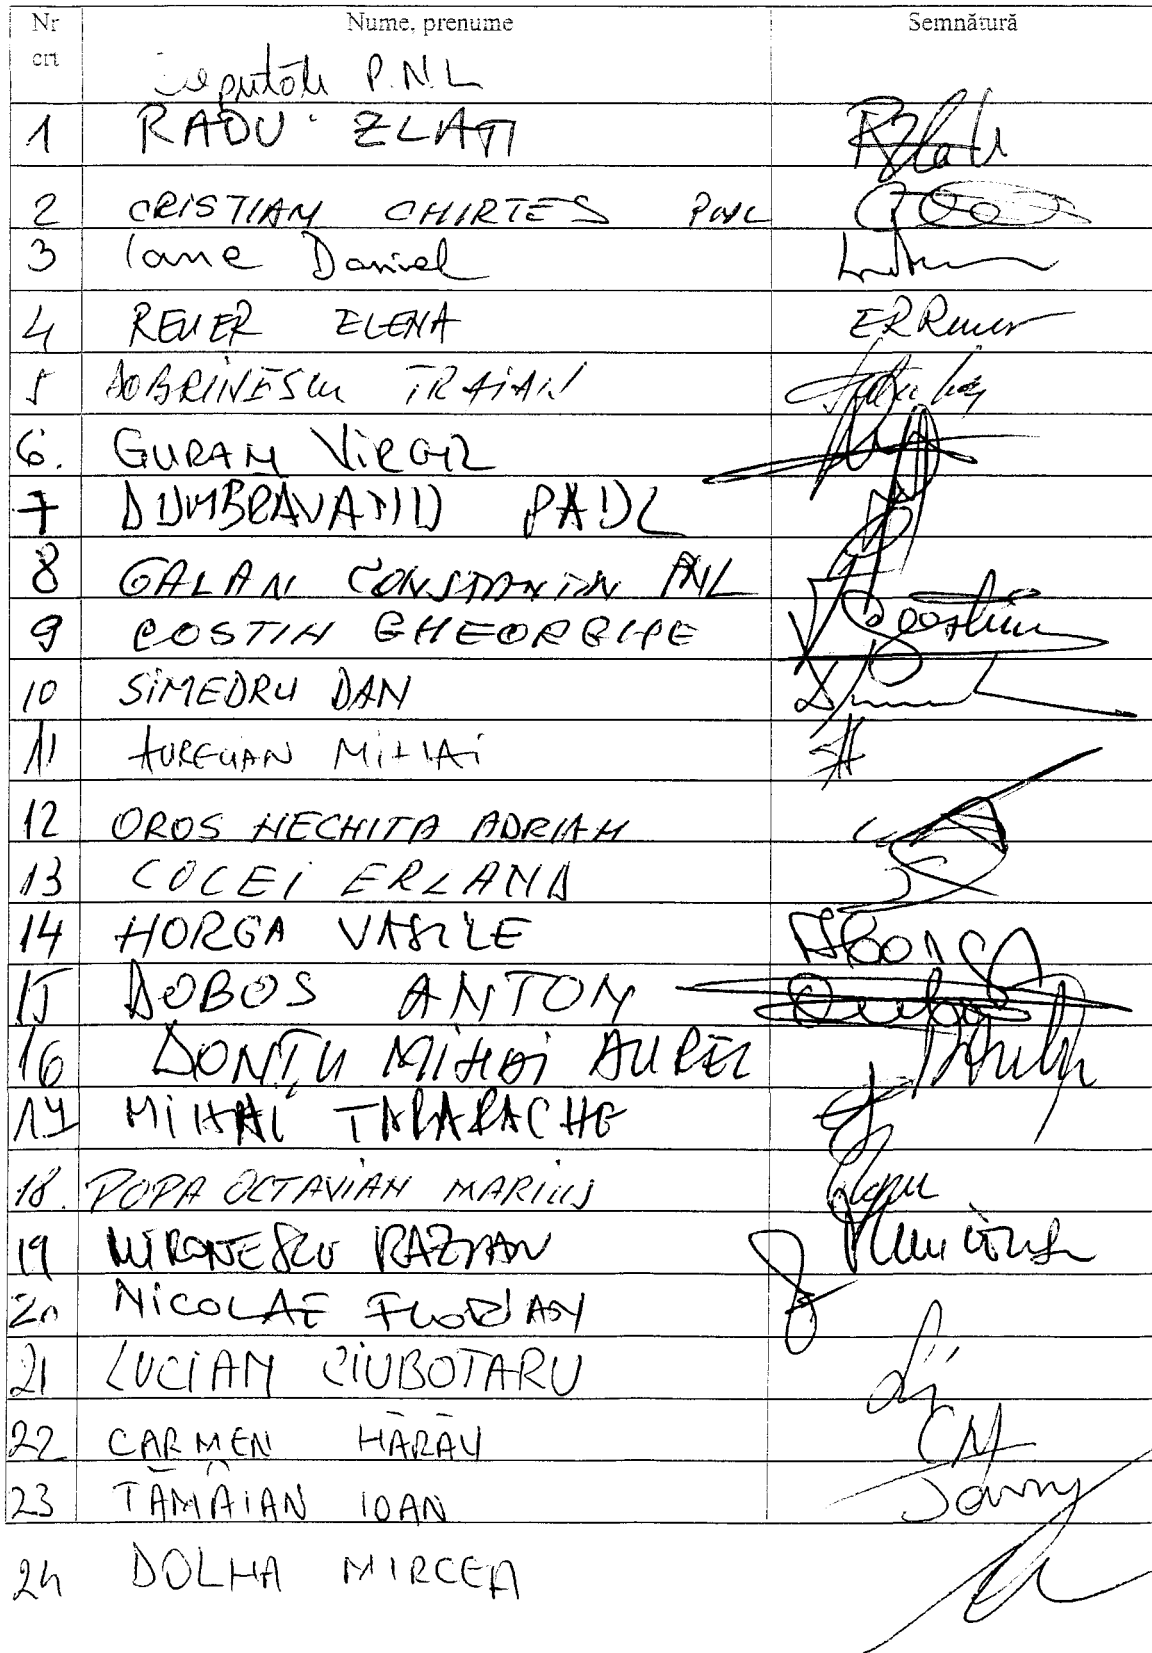 Nr Nume, prenume Semnătură
crt
Deputați P.N.L
1 RADU ZLATI RZlati
2 CRISTIAN CHIRTES PNL
3 Iane Daniel
4 REUER ELENA ERReuer
5 DOBRINESCU TRAIAN
6. GURAN VIRGIL
7 DUMBRAVANU PAUL
8 GALAN CONSTANTIN PNL
9 COSTIN GHEORGHE Costin
10 SIMEDRU DAN
11 AURELIAN MIHAI
12 OROS NECHITA ADRIAN
13 COCEI ERLAND
14 HORGA VASILE Horga
15 DOBOS ANTON
16 DONȚU MIHAI AUREL
17 MIHAI TARARACHE
18. POPA OCTAVIAN MARIUS Popa
19 MIRONESCU RAZVAN
20 NICOLAE FLORIAN
21 LUCIAN CIUBOTARU
22 CARMEN HĂRĂU
23 TĂMÂIAN IOAN
24 DOLHA MIRCEA